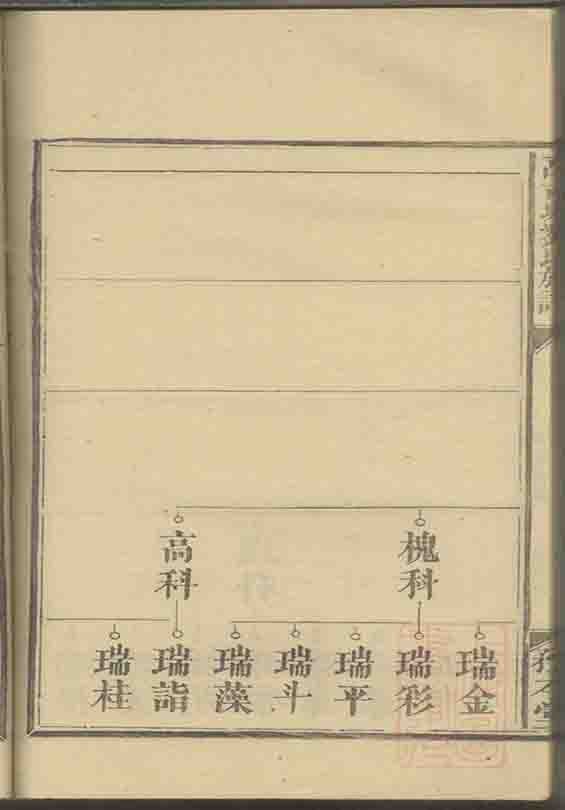 槐科
高科
瑞金
瑞彩
瑞平
瑞斗
瑞藻
瑞詣
瑞桂